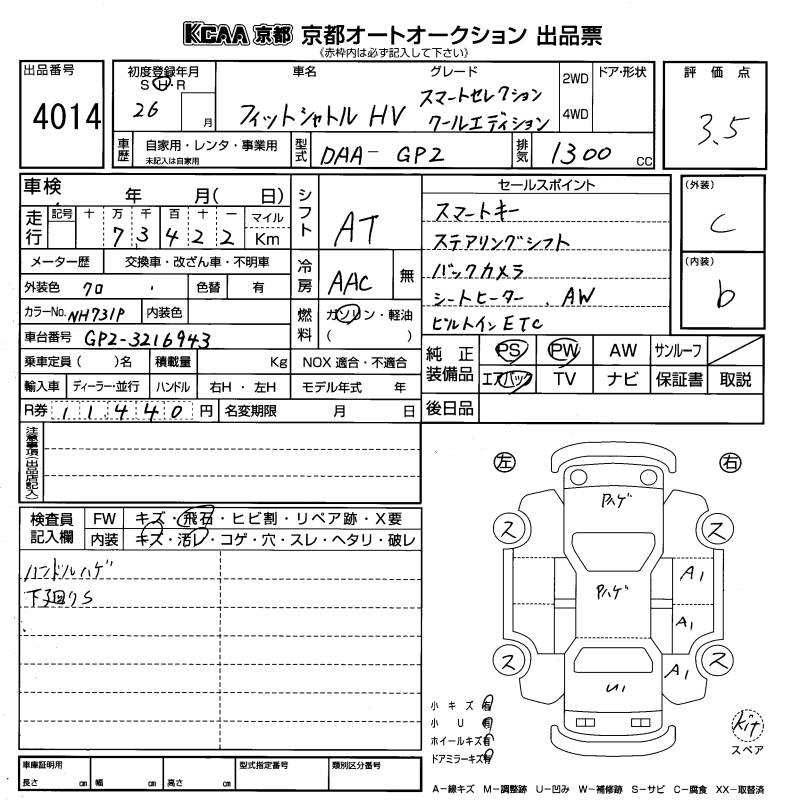 KCAA 京都 京都オートオークション 出品票
《赤枠内は必ず記入して下さい》
出品番号
4014
初度登録年月
S H・R
26 月
車名
フィットシャトル HV
グレード
スマートセレクション
クールエディション
2WD
4WD
ドア・形状
評価点
3.5
車歴
自家用・レンタ・事業用
未記入は自家用
型式
DAA-GP2
排気
1300 CC
車検 年 月( 日)
走行
記号 十 万 千 百 十 一 マイル
7 3 4 2 2 Km
シフト
AT
セールスポイント
スマートキー
ステアリングシフト
バックカメラ
シートヒーター . AW
ビルトインETC
(外装)
C
(内装)
b
メーター歴 交換車・改ざん車・不明車
外装色 クロ 色替 有
カラーNo. NH731P 内装色
車台番号 GP2-3216943
冷房
AAC 無
燃料
ガソリン・軽油
( )
乗車定員 ( )名 積載量 Kg NOX 適合・不適合
輸入車 ディーラー・並行 ハンドル 右H・左H モデル年式 年
R券 11440 円 名変期限 月 日
純正装備品
PS PW AW サンルーフ
エアバック TV ナビ 保証書 取説
後日品
注意事項(出品店記入)
検査員記入欄
FW キズ・飛石・ヒビ割・リペア跡・X要
内装 キズ・汚レ・コゲ・穴・スレ・ヘタリ・破レ
ハンドルハゲ
下廻りS
左 右
Pハゲ
ス ス
A1
Pハゲ
A1
ス ス
A1
U1
小キズ 有
小U 有
ホイールキズ 有
ドアミラーキズ 有
Kit
スペア
車庫証明用
長さ cm 幅 cm 高さ cm
型式指定番号
類別区分番号
A−線キズ M−調整跡 U−凹み W−補修跡 S−サビ C−腐食 XX−取替済